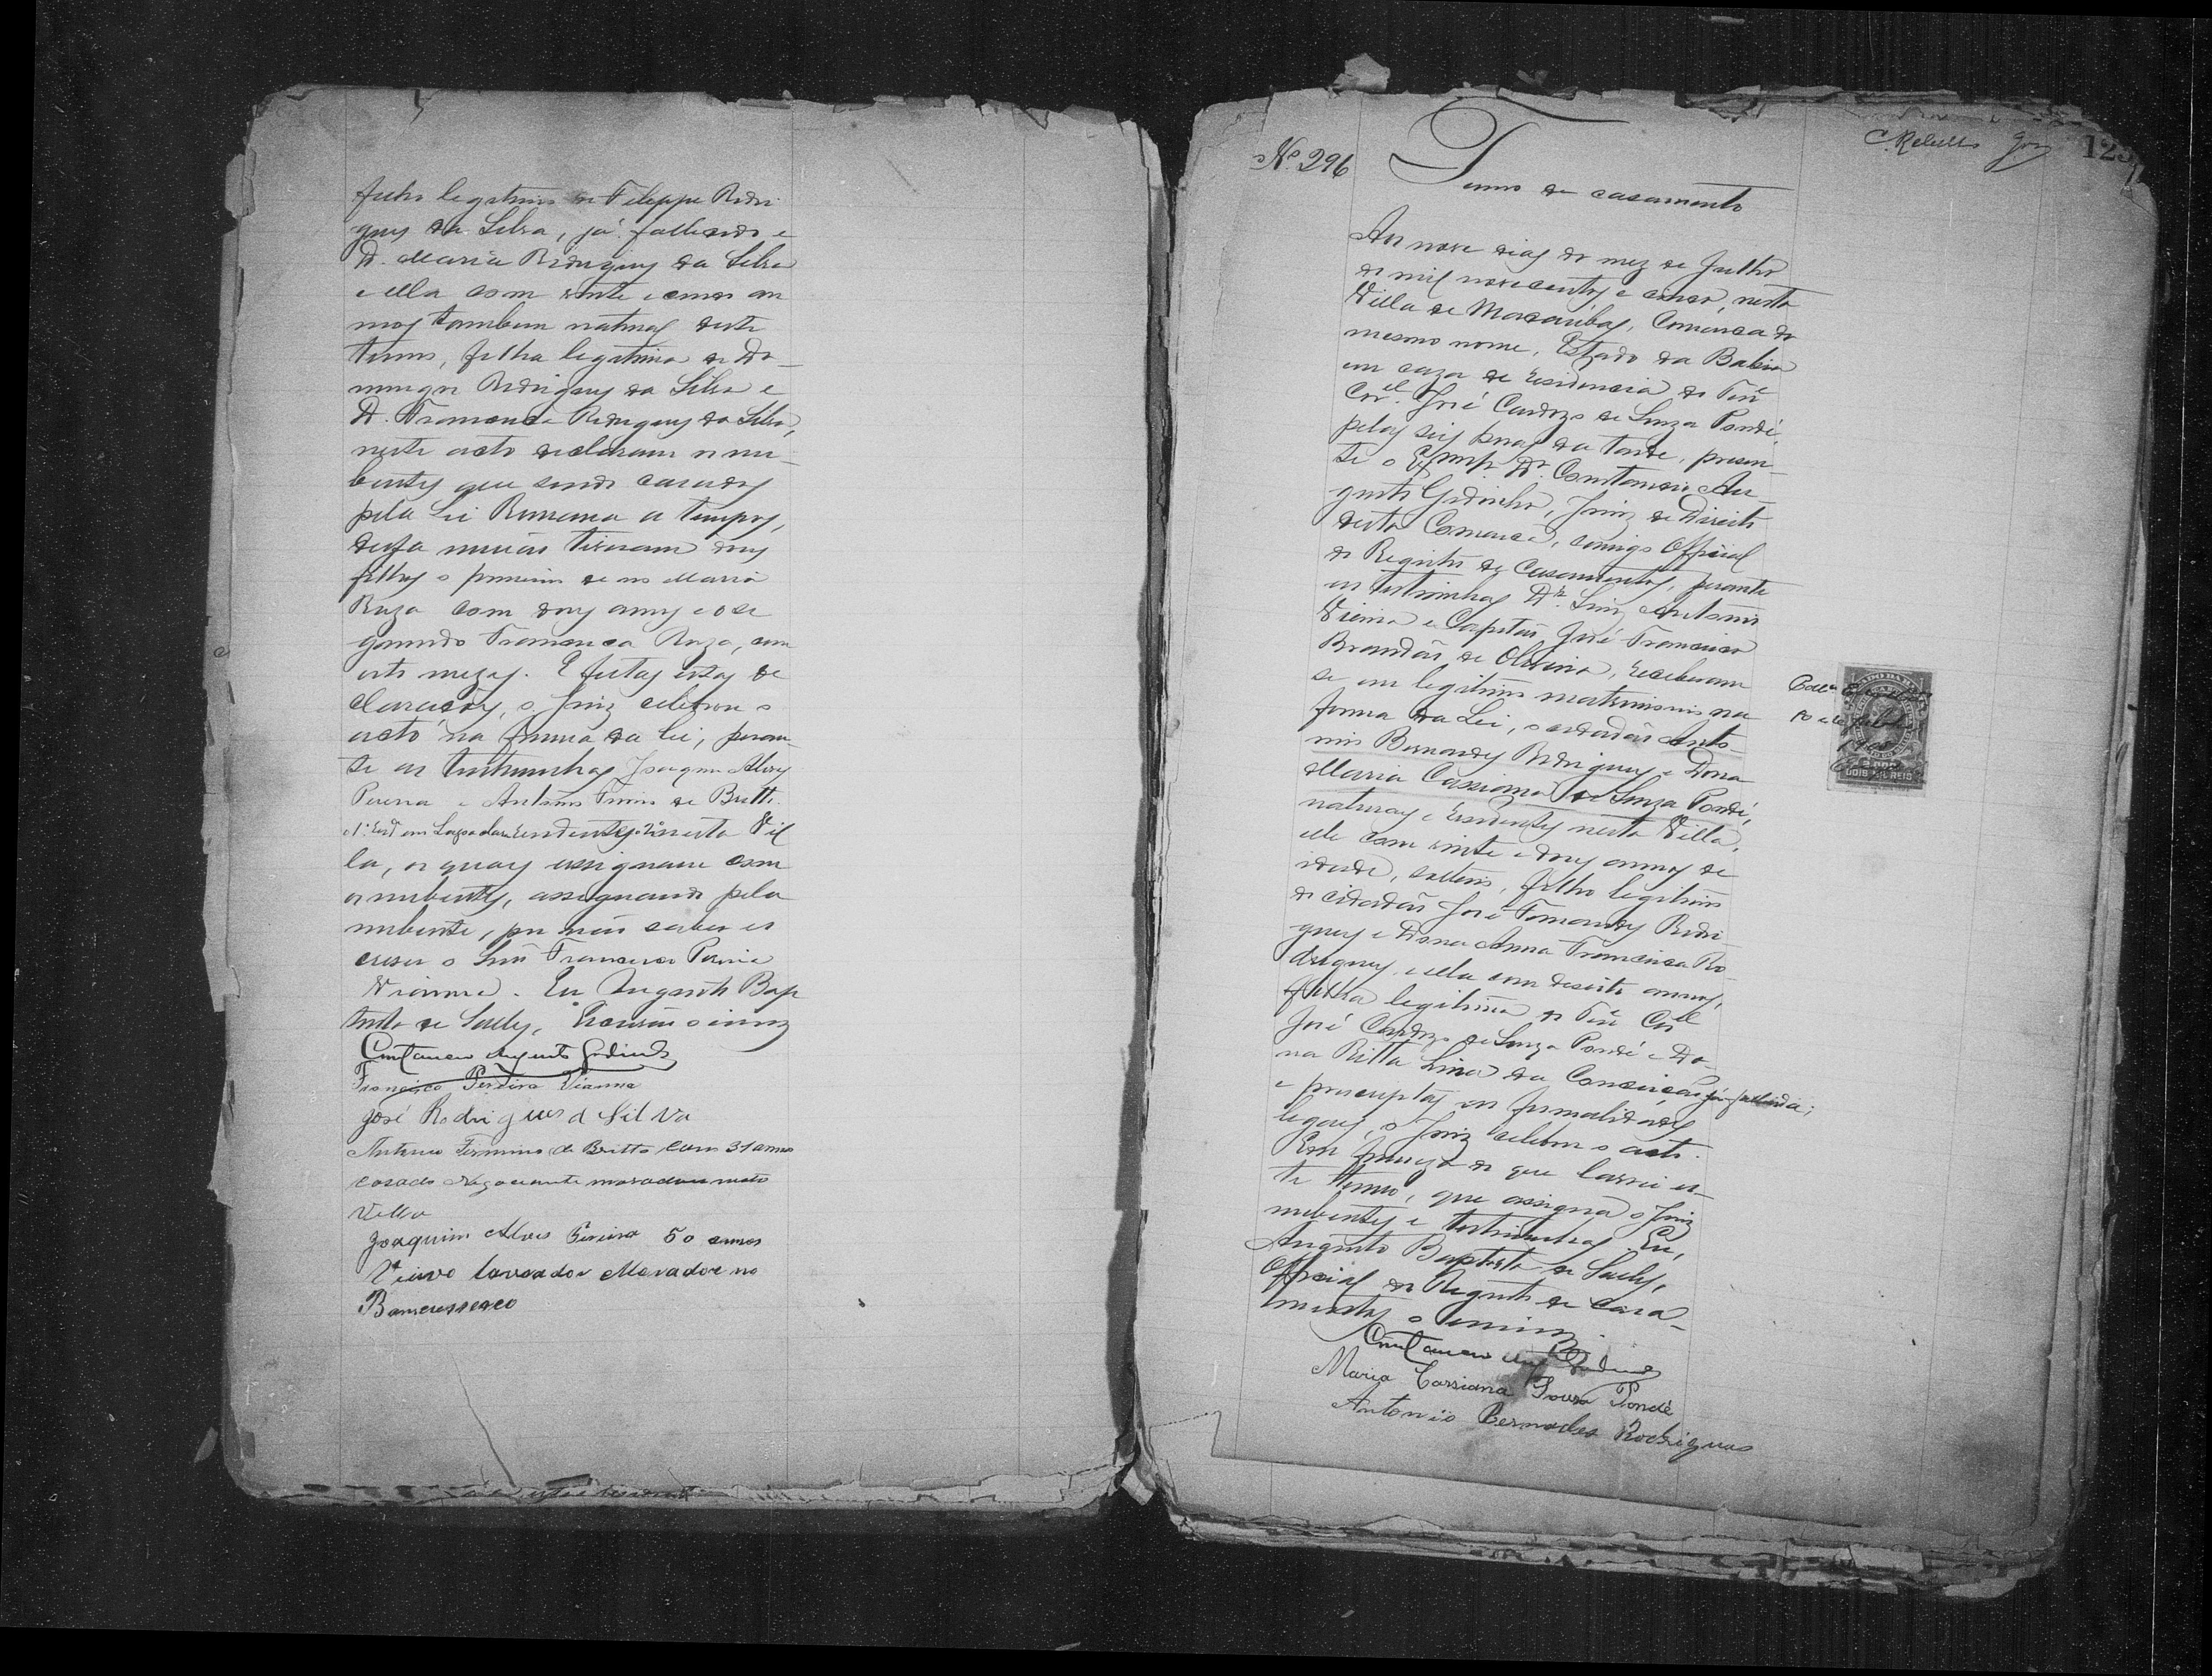 filho legitimo de Felippe Rodri
gues da Silva, já fallecido e
D. Maria Rodrigues da Silva
e ella com vinte e cinco an
nos tambem natural deste
termo, filha legitima de Do-
mingos Rodrigues da Silva e
D. Francisca Rodrigues da Silva,
neste acto declaram os nu-
bentes que sendo casados
pela Lei Romana a tempos,
desta união tiveram dous
filhos o primeiro de nome Maria
Roza com dous annos e o se
gundo Francisca Roza, com
oito mezes. E feitas estas de
clarações, o Juiz celebrou o
acto na forma da lei, peran-
te as testemunhas Joaquim Alves
Pereira e Antonio Firmino de Britto
o 1º em residentes o 2º nesta Vil
la, os quaes assignaram com
os nubentes, assignando pela
nubente, por não saber es
crever o Senr Francisco Pereira
Vianna. Eu Augusto Bap
tista de Salles, Escrivão o escrevi
Constancio Augusto Godinho
Francisco Pereira Vianna
José Rodrigues d Silva
Antonio Firmino de Britto com 31 annos
casado Negociante morador nesta
Villa
Joaquim Alves Pereira 50 annos
Viuvo lavrador Morador no
C. Rebello
Nº 296
Termo de casamento
Aos nove dias do mez de Julho
de mil novecentos e cinco, nesta
Villa de Macaúbas, Comarca do
mesmo nome, Estado da Bahia
em caza de residencia do Tene
Corel José Cardozo de Souza Pondé,
pelas seis horas da tarde, presen-
te o Exmº Dr Constancio Au-
gusto Godinho, Juiz de Direito
desta Comarca, comigo Official
do Registro de Casamentos, perante
as testemunhas Dr Luiz Antonio
Vieira e Capitão José Francisco
Brandão de Oliveira, receberam
se em legitimo matrimonio na
forma da Lei, o cidadão Anto-
nio Bernardes Rodrigues e Dona
Maria Cassiana de Souza Pondé,
naturaes e residentes nesta Villa,
elle com vinte e dous annos de
idade, solteiro, filho legitimo
do cidadão José Fernandes Rodri-
gues e Dona Anna Francisca Ro-
drigues, e ella com desoito annos,
filha legitima do Tene Corel
José Cardozo de Souza Pondé e Do-
na Ritta Lina da Conceição já fallecida;
e preenchidas as formalidades
legaes, o Juiz celebrou o acto.
Em firmeza do que lavrei es-
te termo, que assigna o Juiz
nubentes e testemunhas. Eu,
Augusto Baptista de Salles,
Official do Registro de Casa-
mentos o escrevi.
Constancio Aug Godinho
Maria Cassiana Souza Pondé
Antonio Bernardes Rodrigues
ESTADO DA BAHIA
2.000
DOIS MIL REIS